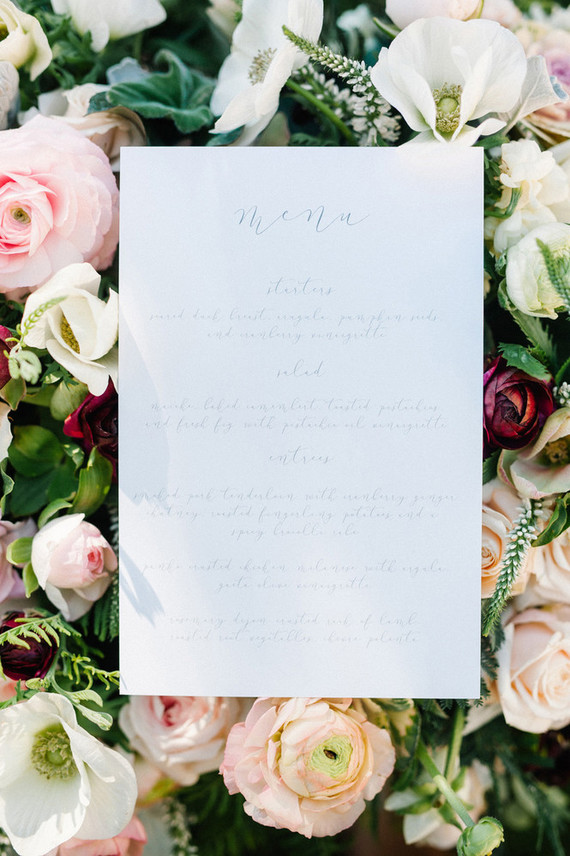 menu
starters
seared duck breast, arugula, pumpkin seeds,
and cranberry vinaigrette
salad
baked camembert, toasted pistachios,
and fresh fig, with pistachio oil vinaigrette
entrees
smoked pork tenderloin, with cranberry ginger
chutney, roasted fingerling potatoes and a
spicy broccolini
crusted chicken, milanese with
vinaigrette
rosemary dijon crusted rack of lamb,
roasted root vegetables, polenta